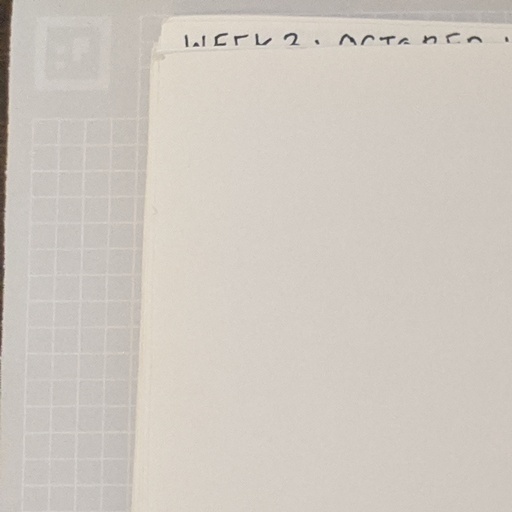 WEEK 2: OCTOBER